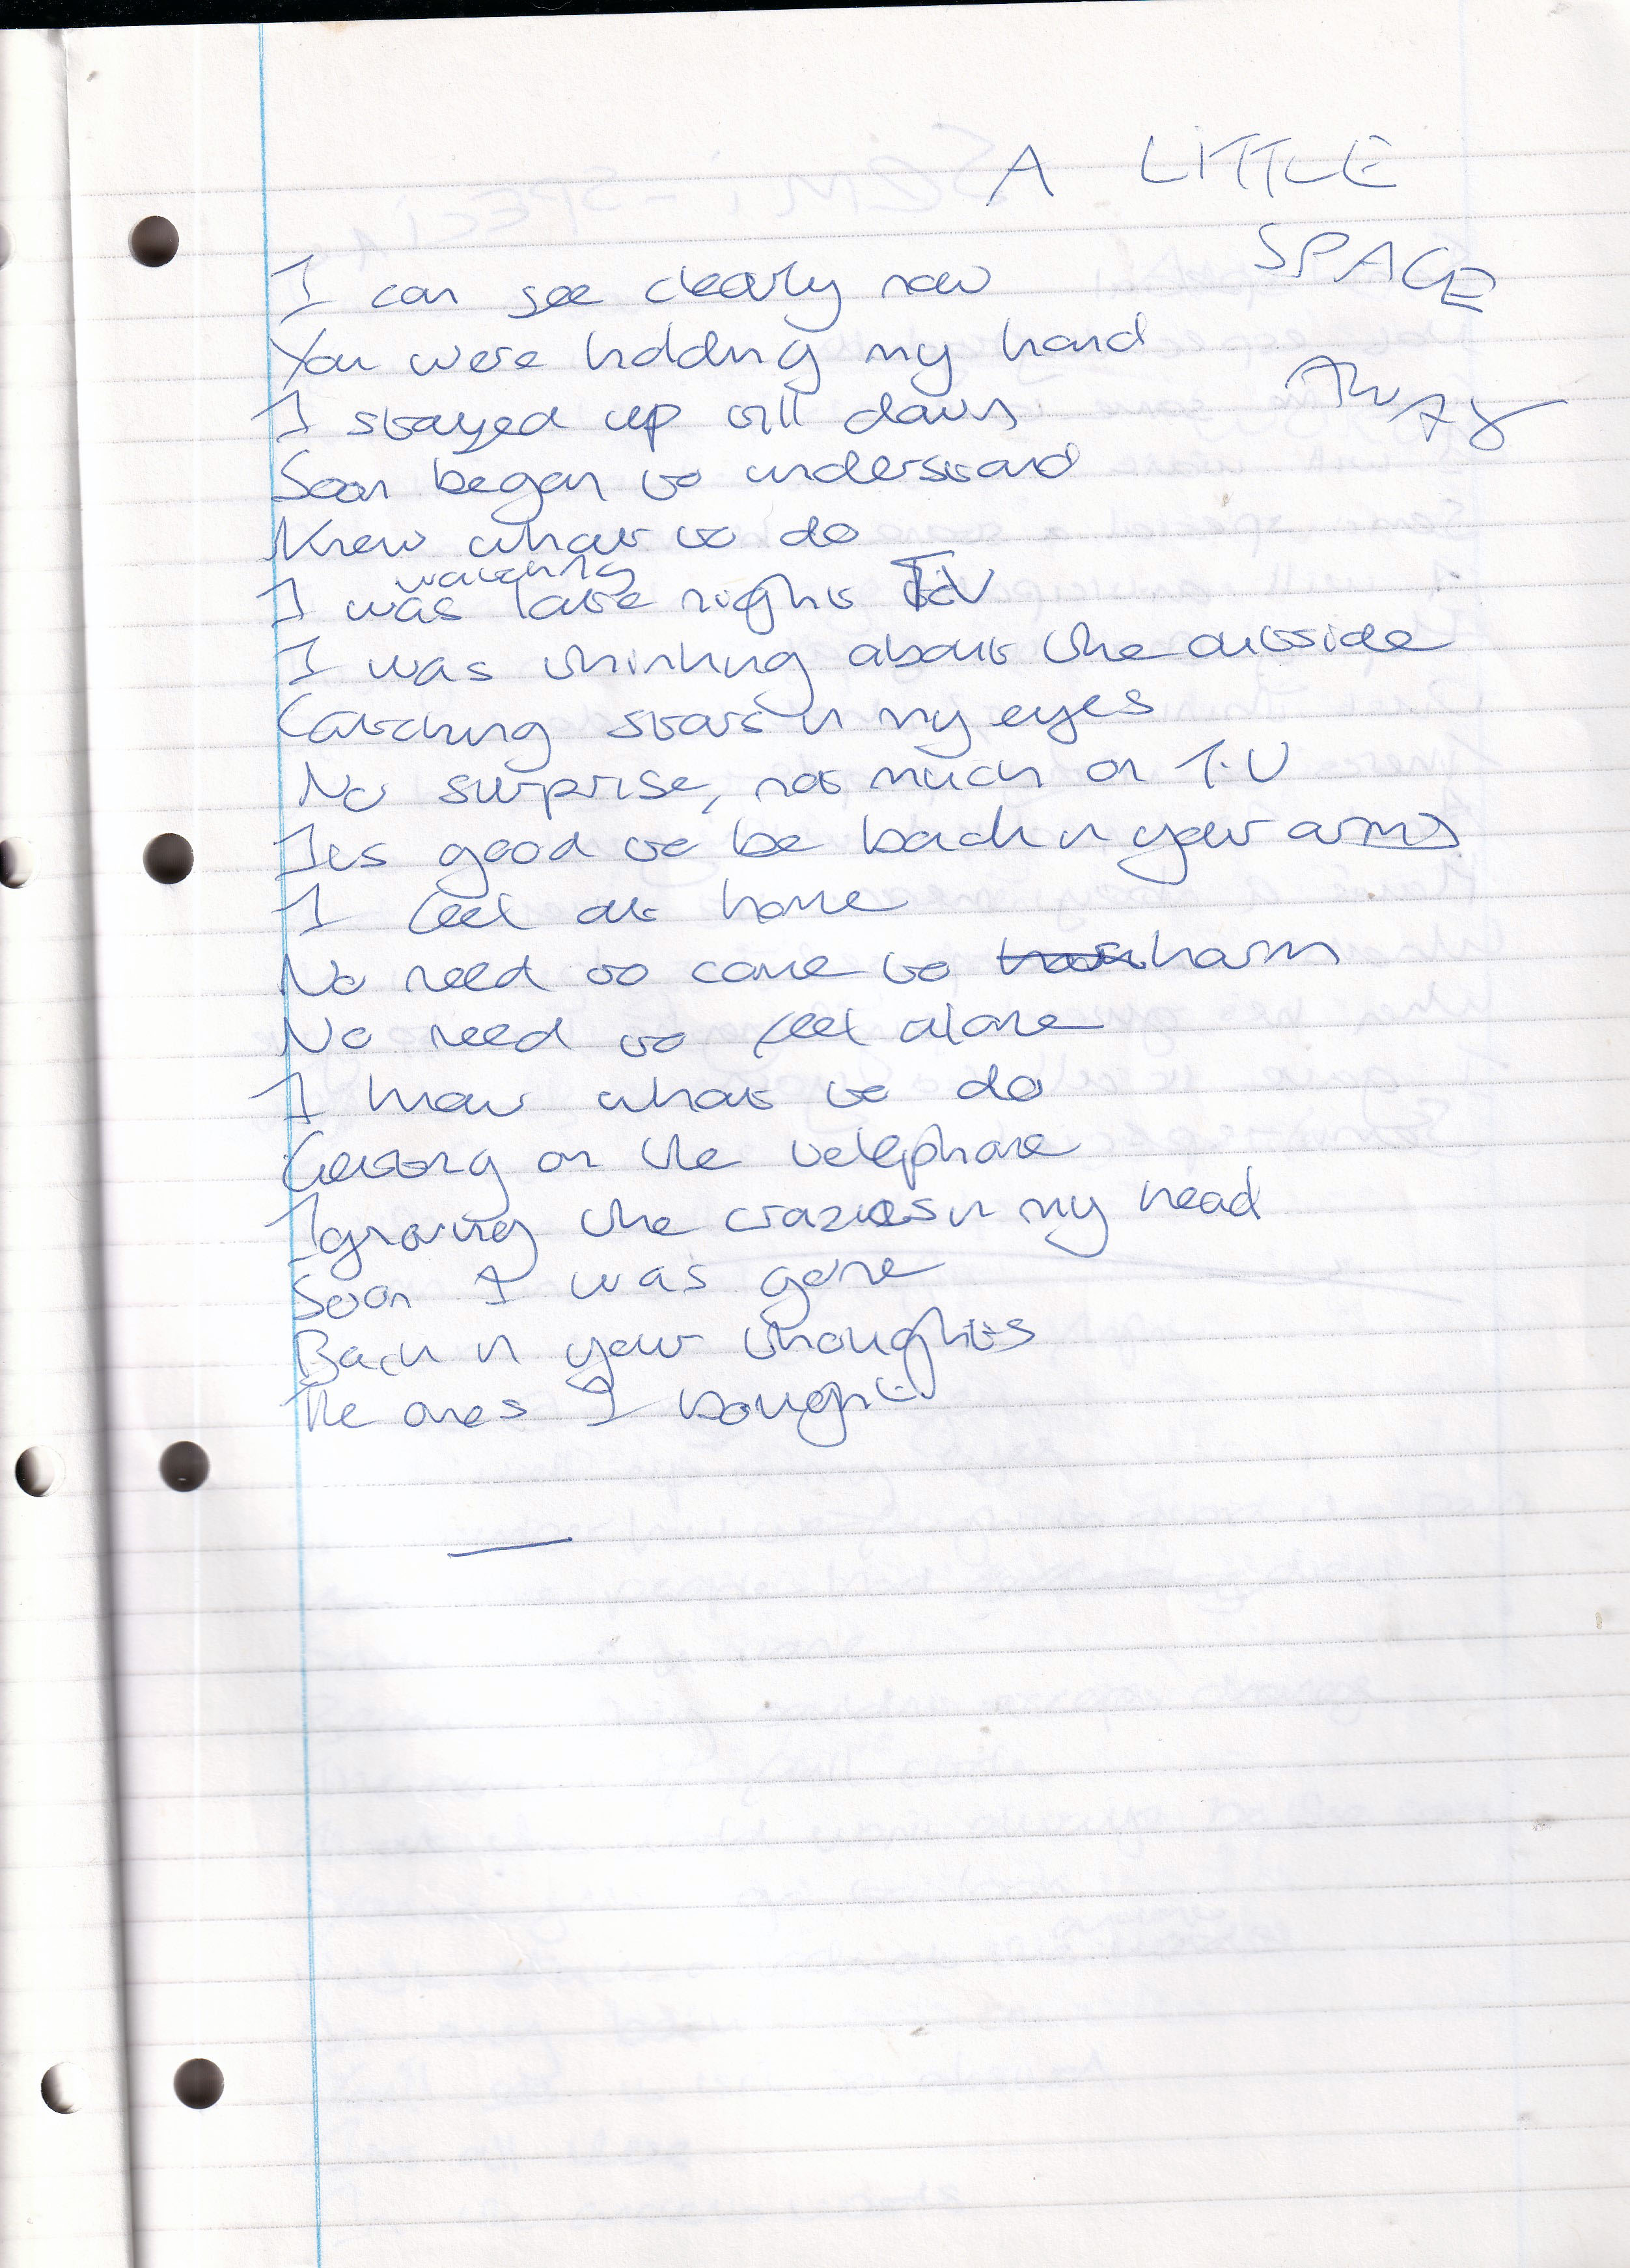 A LITTLE
SPACE
AWAY
I can see clearly now
You were holding my hand
I stayed up till dawn
Soon began to understand
Knew what to do
watching
I was late night TV
I was thinking about the outside
Catching stars in my eyes
No surprise, not much on T.V
Its good to be back in your arms
I feel at home
No need to come to harm
No need to feel alone
I know what to do
Getting on the telephone
Ignoring the crazies in my head
Soon I was gone
Back in your thoughts
The ones I bought